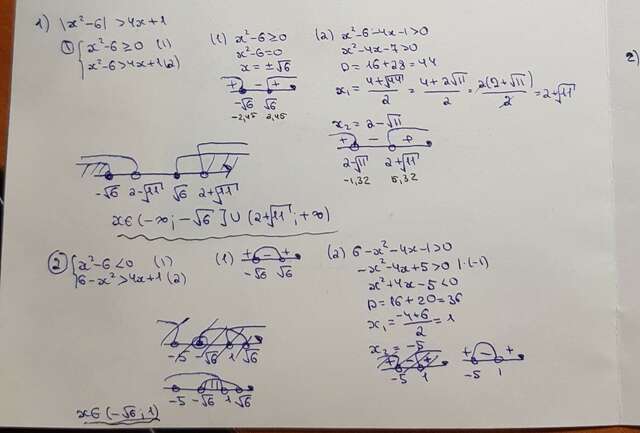 1) |x²-6| > 4x+1
① { x²-6 ≥ 0 (1)
x²-6 > 4x+1 (2)
(1) x²-6 ≥ 0
x²-6 = 0
x = ±√6
+ - +
-√6 √6
-2,45 2,45
(2) x²-6-4x-1 > 0
x²-4x-7 > 0
D = 16+28 = 44
x₁ = (4+√44)/2 = (4+2√11)/2 = 2(2+√11)/2 = 2+√11
x₂ = 2-√11
+ - +
2-√11 2+√11
-1,32 5,32
-√6 2-√11 √6 2+√11
x∈(-∞; -√6] ∪ (2+√11; +∞)
② { x²-6 < 0 (1)
6-x² > 4x+1 (2)
(1) + - +
-√6 √6
(2) 6-x²-4x-1 > 0
-x²-4x+5 > 0 |·(-1)
x²+4x-5 < 0
D = 16+20 = 36
x₁ = (-4+6)/2 = 1
x₂ = -5
+ - +
-5 1
+ - +
-5 1
-5 -√6 1 √6
-5 -√6 1 √6
x∈(-√6; 1)
2)